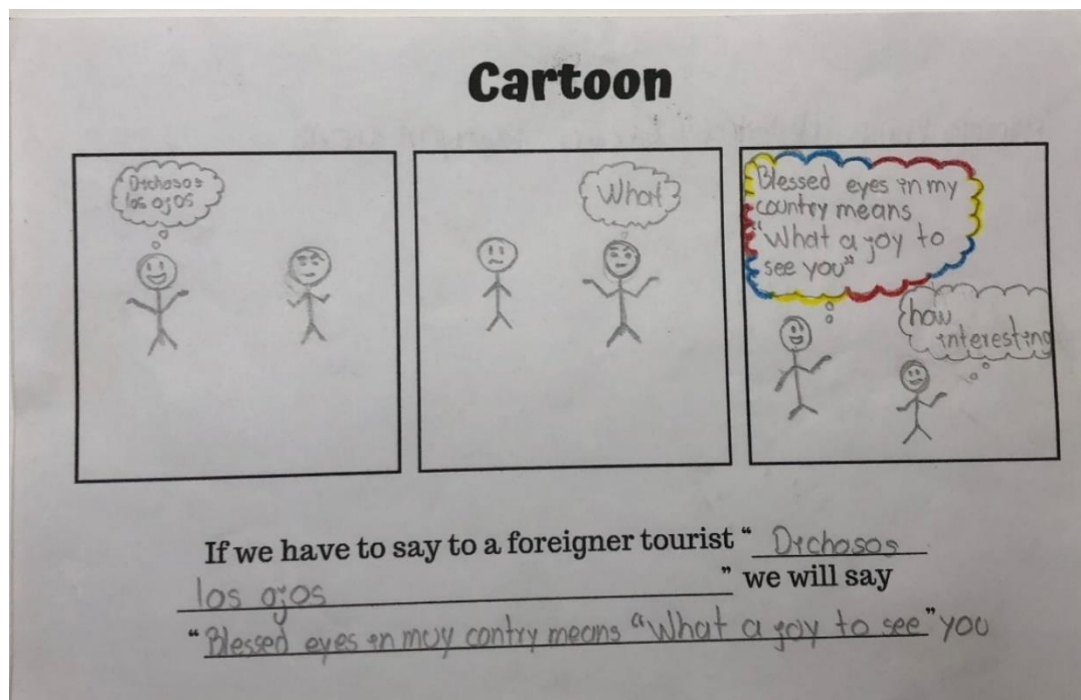 Cartoon
Dichosos
los ojos
What?
Blessed eyes in my
country means
"What a joy to
see you"
how
interesting
If we have to say to a foreigner tourist “ Dichosos
los ojos ” we will say
“Blessed eyes in muy contry means “What a joy to see” you